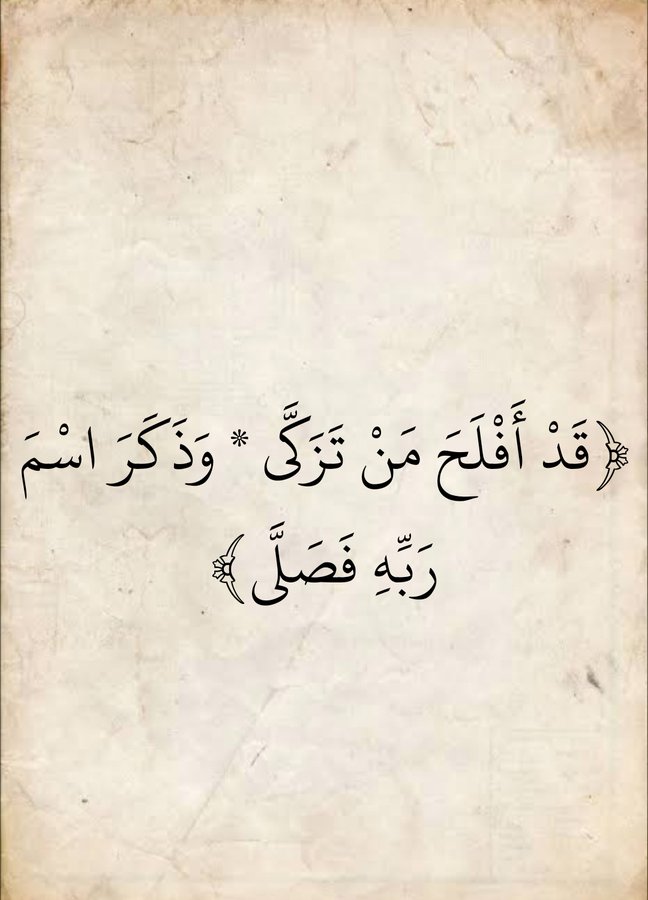 ﴿قَدْ أَفْلَحَ مَنْ تَزَكَّى * وَذَكَرَ اسْمَ
رَبِّهِ فَصَلَّى﴾